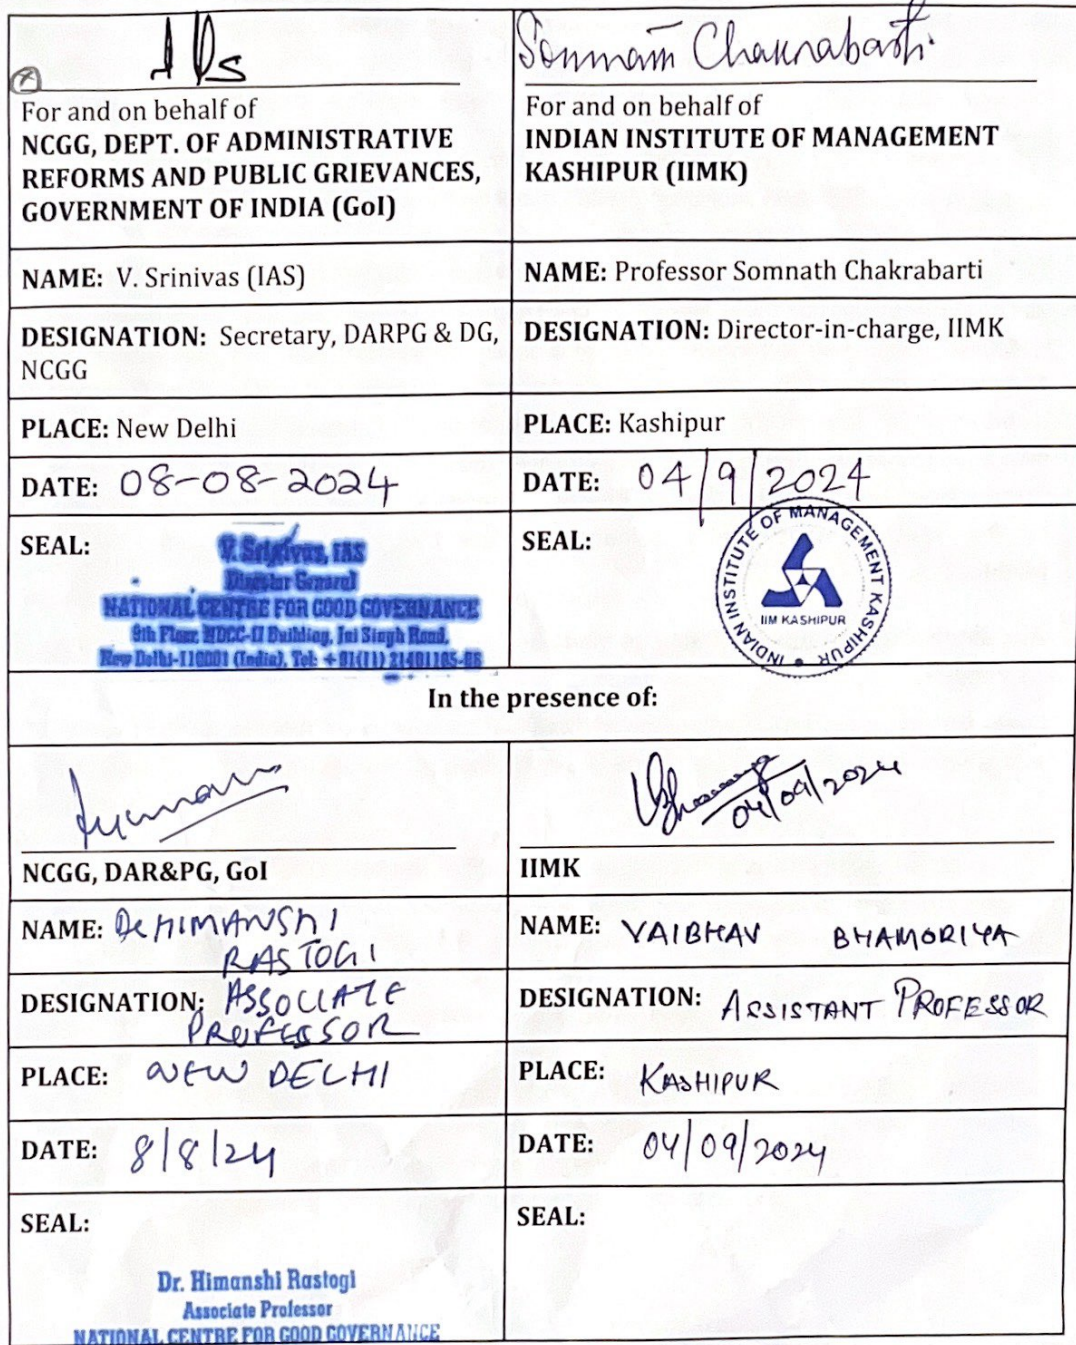 Somnath Chakrabarti
For and on behalf of
NCGG, DEPT. OF ADMINISTRATIVE
REFORMS AND PUBLIC GRIEVANCES,
GOVERNMENT OF INDIA (GoI)
For and on behalf of
INDIAN INSTITUTE OF MANAGEMENT
KASHIPUR (IIMK)
NAME: V. Srinivas (IAS)
NAME: Professor Somnath Chakrabarti
DESIGNATION: Secretary, DARPG & DG,
NCGG
DESIGNATION: Director-in-charge, IIMK
PLACE: New Delhi
PLACE: Kashipur
DATE: 08-08-2024
DATE: 04/9/2024
SEAL:
V. Srinivas, IAS
Director General
NATIONAL CENTRE FOR GOOD GOVERNANCE
9th Floor, NDCC-II Building, Jai Singh Road,
New Delhi-110001 (India), Tel:
SEAL:
INDIAN INSTITUTE OF MANAGEMENT KASHIPUR
IIM KASHIPUR
In the presence of:
04/09/2024
NCGG, DAR&PG, GoI
IIMK
NAME: Dr HIMANSHI
RASTOGI
NAME: VAIBHAV BHAMORIYA
DESIGNATION: ASSOCIATE
PROFESSOR
DESIGNATION: ASSISTANT PROFESSOR
PLACE: NEW DELHI
PLACE: KASHIPUR
DATE: 8/8/24
DATE: 04/09/2024
SEAL:
Dr. Himanshi Rastogi
Associate Professor
NATIONAL CENTRE FOR GOOD GOVERNANCE
SEAL: